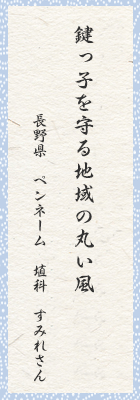 鍵っ子を守る地域の丸い風
長野県　ペンネーム　埴科　すみれさん